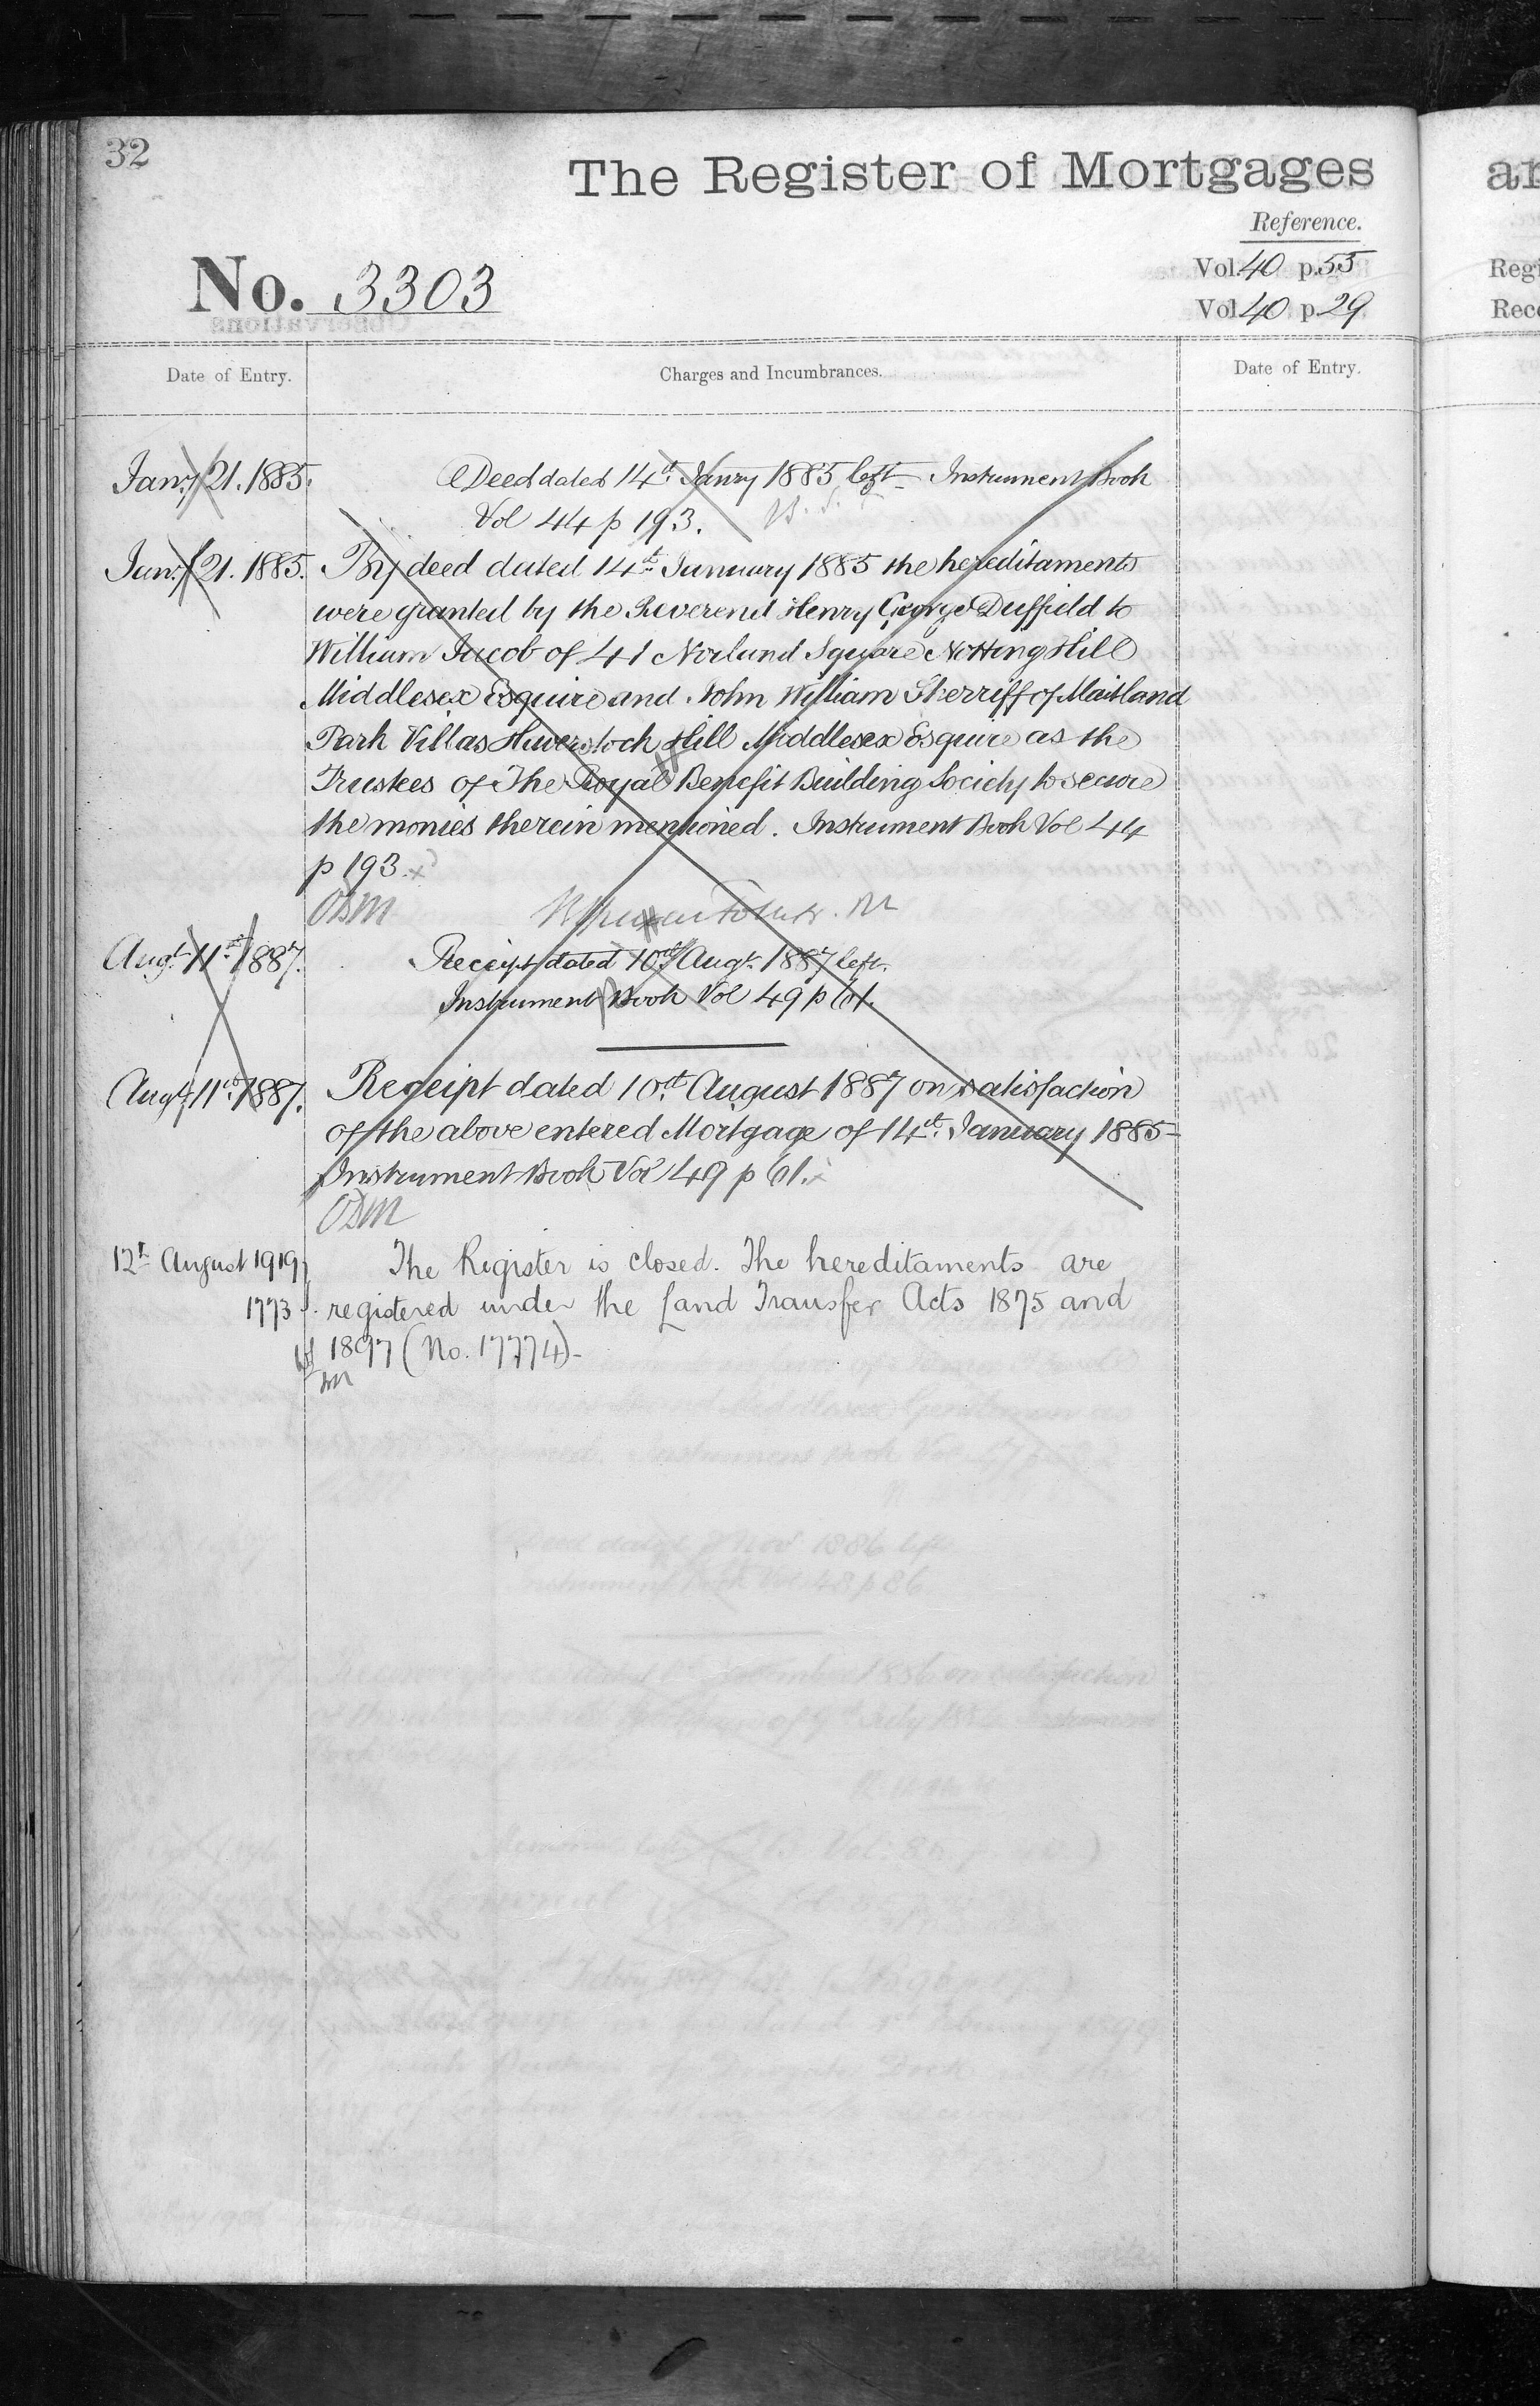 32
The Register of Mortgages
Reference.
No. 3303
Vol. 40 p. 55
Vol. 40 p. 29
Date of Entry.
Charges and Incumbrances.
Date of Entry.
Jany. 21. 1885.
Deed dated 14th Janry 1885 left Instrument Book
Vol 44 p 193.
Jany. 21. 1885.
By deed dated 14th January 1885 the hereditaments
were granted by the Reverend Henry George Duffield to
William Jacob of 41 Norlund Square Notting Hill
Middlesex Esquire and John William Sherriff of Maitland
Park Villas Haverstock Hill Middlesex Esquire as the
Trustees of The Royal Benefit Building Society to secure
the monies therein mentioned. Instrument Book Vol 44
p 193.
ODM
Augt. 11th 1887.
Receipt dated 10th Augt. 1887 left.
Instrument Book Vol 49 p 61.
Augt. 11th 1887.
Receipt dated 10th August 1887 on satisfaction
of the above entered Mortgage of 14th January 1885
Instrument Book Vol 49 p 61.
ODM
12th August 1919
The Register is closed. The hereditaments are
1773
registered under the Land Transfer Acts 1875 and
1897 (No. 17774)
ar
Regi
Rece